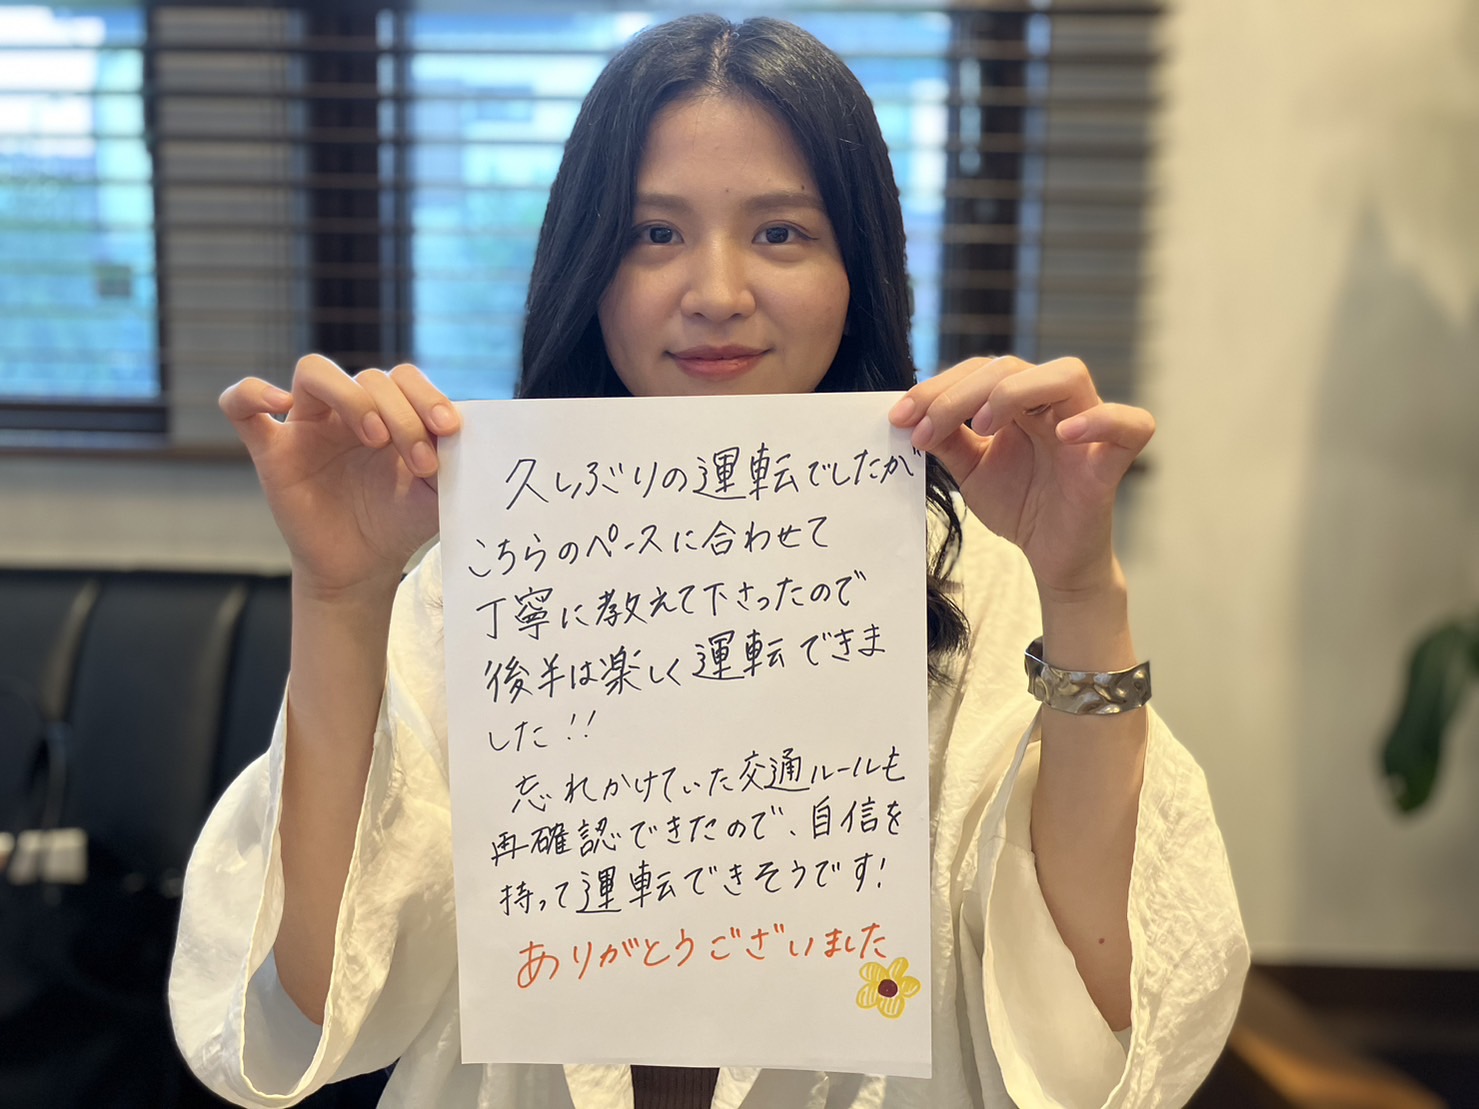 久しぶりの運転でしたが
こちらのペースに合わせて
丁寧に教えて下さったので
後半は楽しく運転できま
した!!
忘れかけていた交通ルールも
再確認できたので、自信を
持って運転できそうです!
ありがとうございました